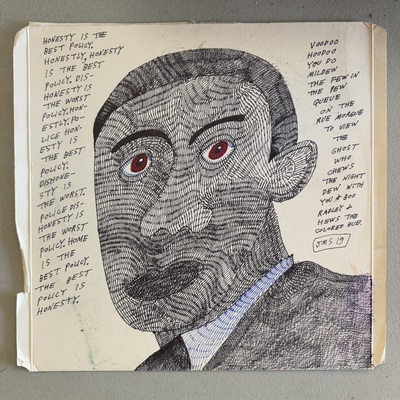 HONESTY IS THE
BEST POLICY.
HONESTLY, HONESTY
IS THE BEST
POLICY. DIS-
HONESTY IS
THE WORST
POLICY. HON-
ESTLY. PO-
LICE HON-
ESTY IS
THE BEST
POLICY.
DISHONE-
STY IS
THE WORST.
POLICE DIS-
HONESTY IS
THE WORST
POLICY. HOME
IS THE
BEST POLICY.
THE BEST
POLICY IS
HONESTY.
VOODOO
HOODOO
YOU DO
MILDEW
THE FEW IN
THE PEW
QUEUE
ON THE
RUE MORGUE
TO VIEW
THE
GHOST
WHO
CHEWS
THE NIGHT
DEW WITH
YOU & BOO
RADLEY &
HEWS THE
COLORED HUE.
JMS 19